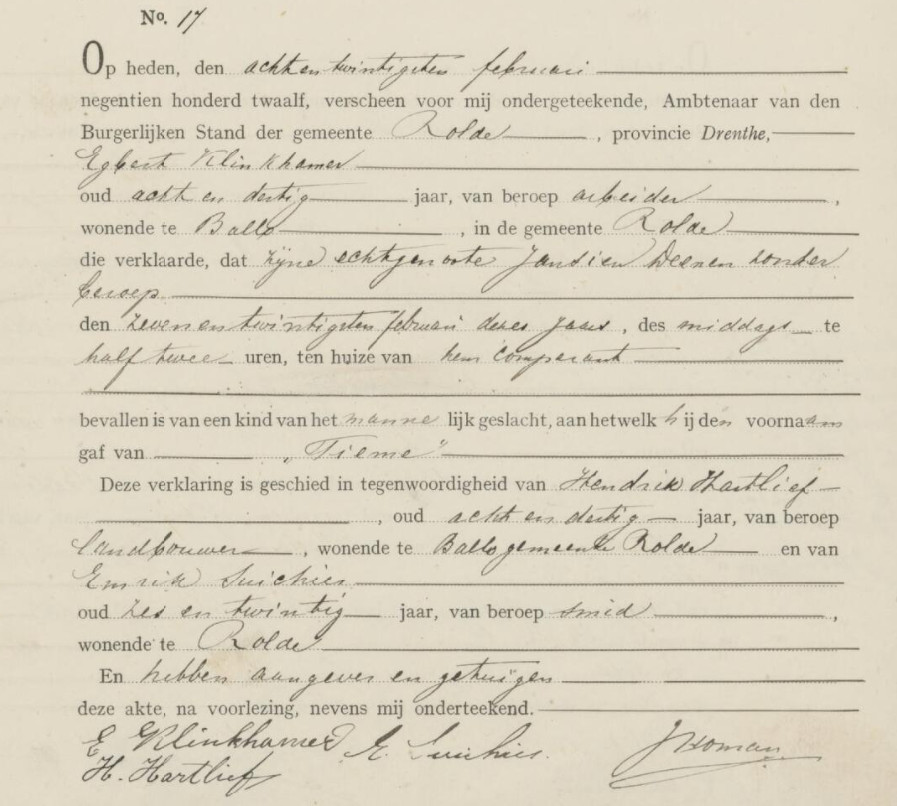 No. 17
Op heden, den acht en twintigsten februari
negentien honderd twaalf, verscheen voor mij ondergeteekende, Ambtenaar van den
Burgerlijken Stand der gemeente Rolde, provincie Drenthe,
Egbert Klinkhamer
oud acht en dertig jaar, van beroep arbeider,
wonende te Ballo, in de gemeente Rolde
die verklaarde, dat zijne echtgenoote Jansien Deenen zonder
beroep
den zeven en twintigsten februari dezes jaars, des middags te
half twee uren, ten huize van hem comparant
bevallen is van een kind van het mannelijk geslacht, aan hetwelk hij den voornaam
gaf van „Tieme"
Deze verklaring is geschied in tegenwoordigheid van Hendrik Hartlief
, oud acht en dertig jaar, van beroep
landbouwer, wonende te Ballo gemeente Rolde en van
Emrik Suichies
oud zes en twintig jaar, van beroep smid,
wonende te Rolde
En hebben aangever en getuigen
deze akte, na voorlezing, nevens mij onderteekend.
E Klinkhamer E. Suichies. J Homan
H. Hartlief